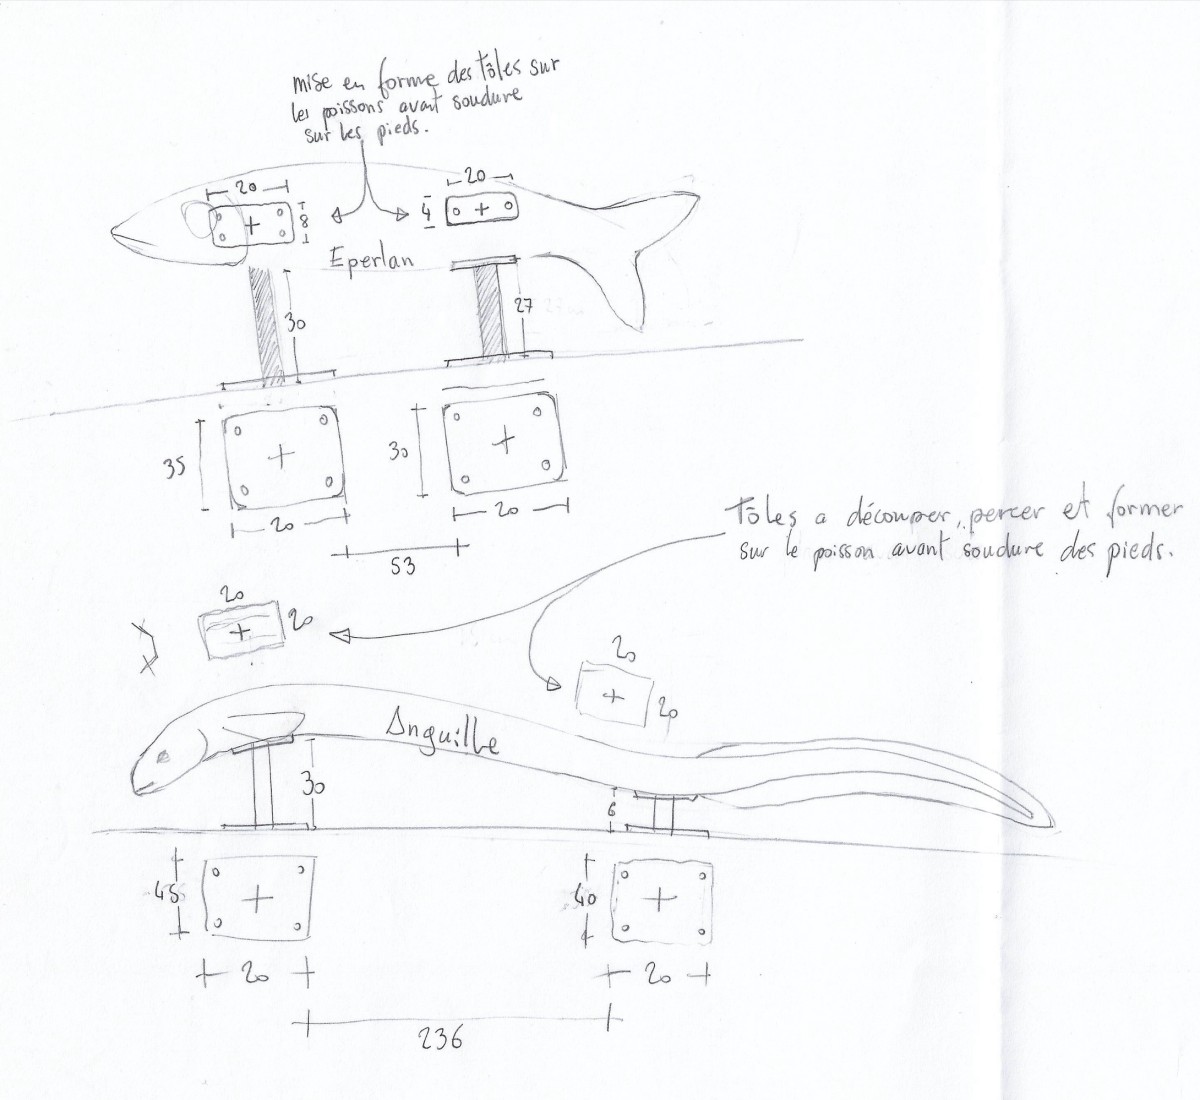 mise en forme des tôles sur
les poissons avant soudure
sur les pieds.
20
20
8
4
Eperlan
30
27
35
30
20
20
53
Tôles a découper, percer et former
sur le poisson avant soudure des pieds.
20
20
20
20
Anguille
30
6
45
40
20
20
236